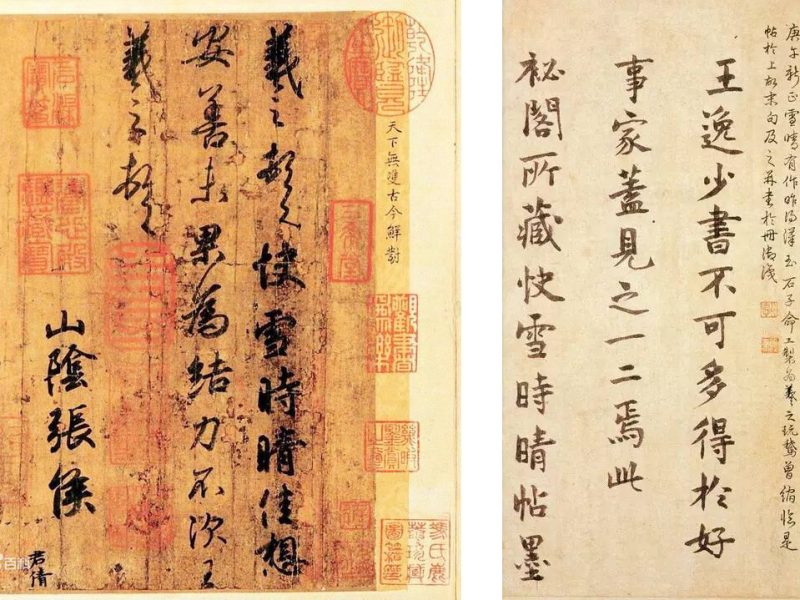 天下無雙古今鮮對
羲之頓首快雪時晴佳想
安善未果為結力不次王
羲之頓首
山陰張侯
君倩
百科
庚午新正雪晴有作昨得漢玉石子命工製為羲之玩鵞曾縮臨是
帖於上故末句及之并書於冊御識
王逸少書不可多得於好
事家蓋見之一二焉此
祕閣所藏快雪時晴帖墨